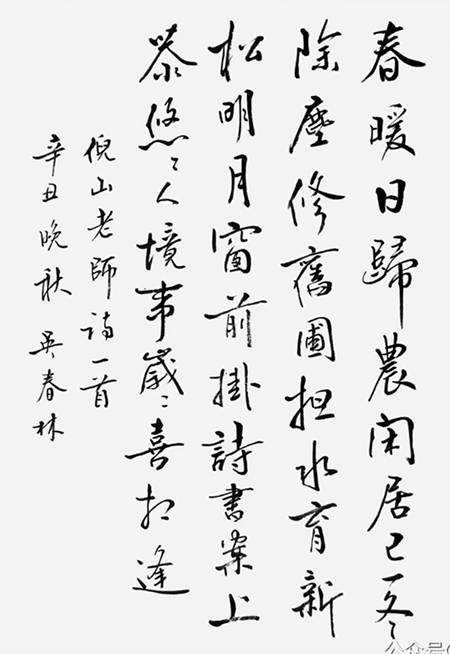 春暖日歸農闲居已一冬
除塵修舊圃担水育新
松明月窗前掛詩書案上
悠々人境事歲々喜相逢
倪山老師詩一首
辛丑晚秋 吴春林
公众号